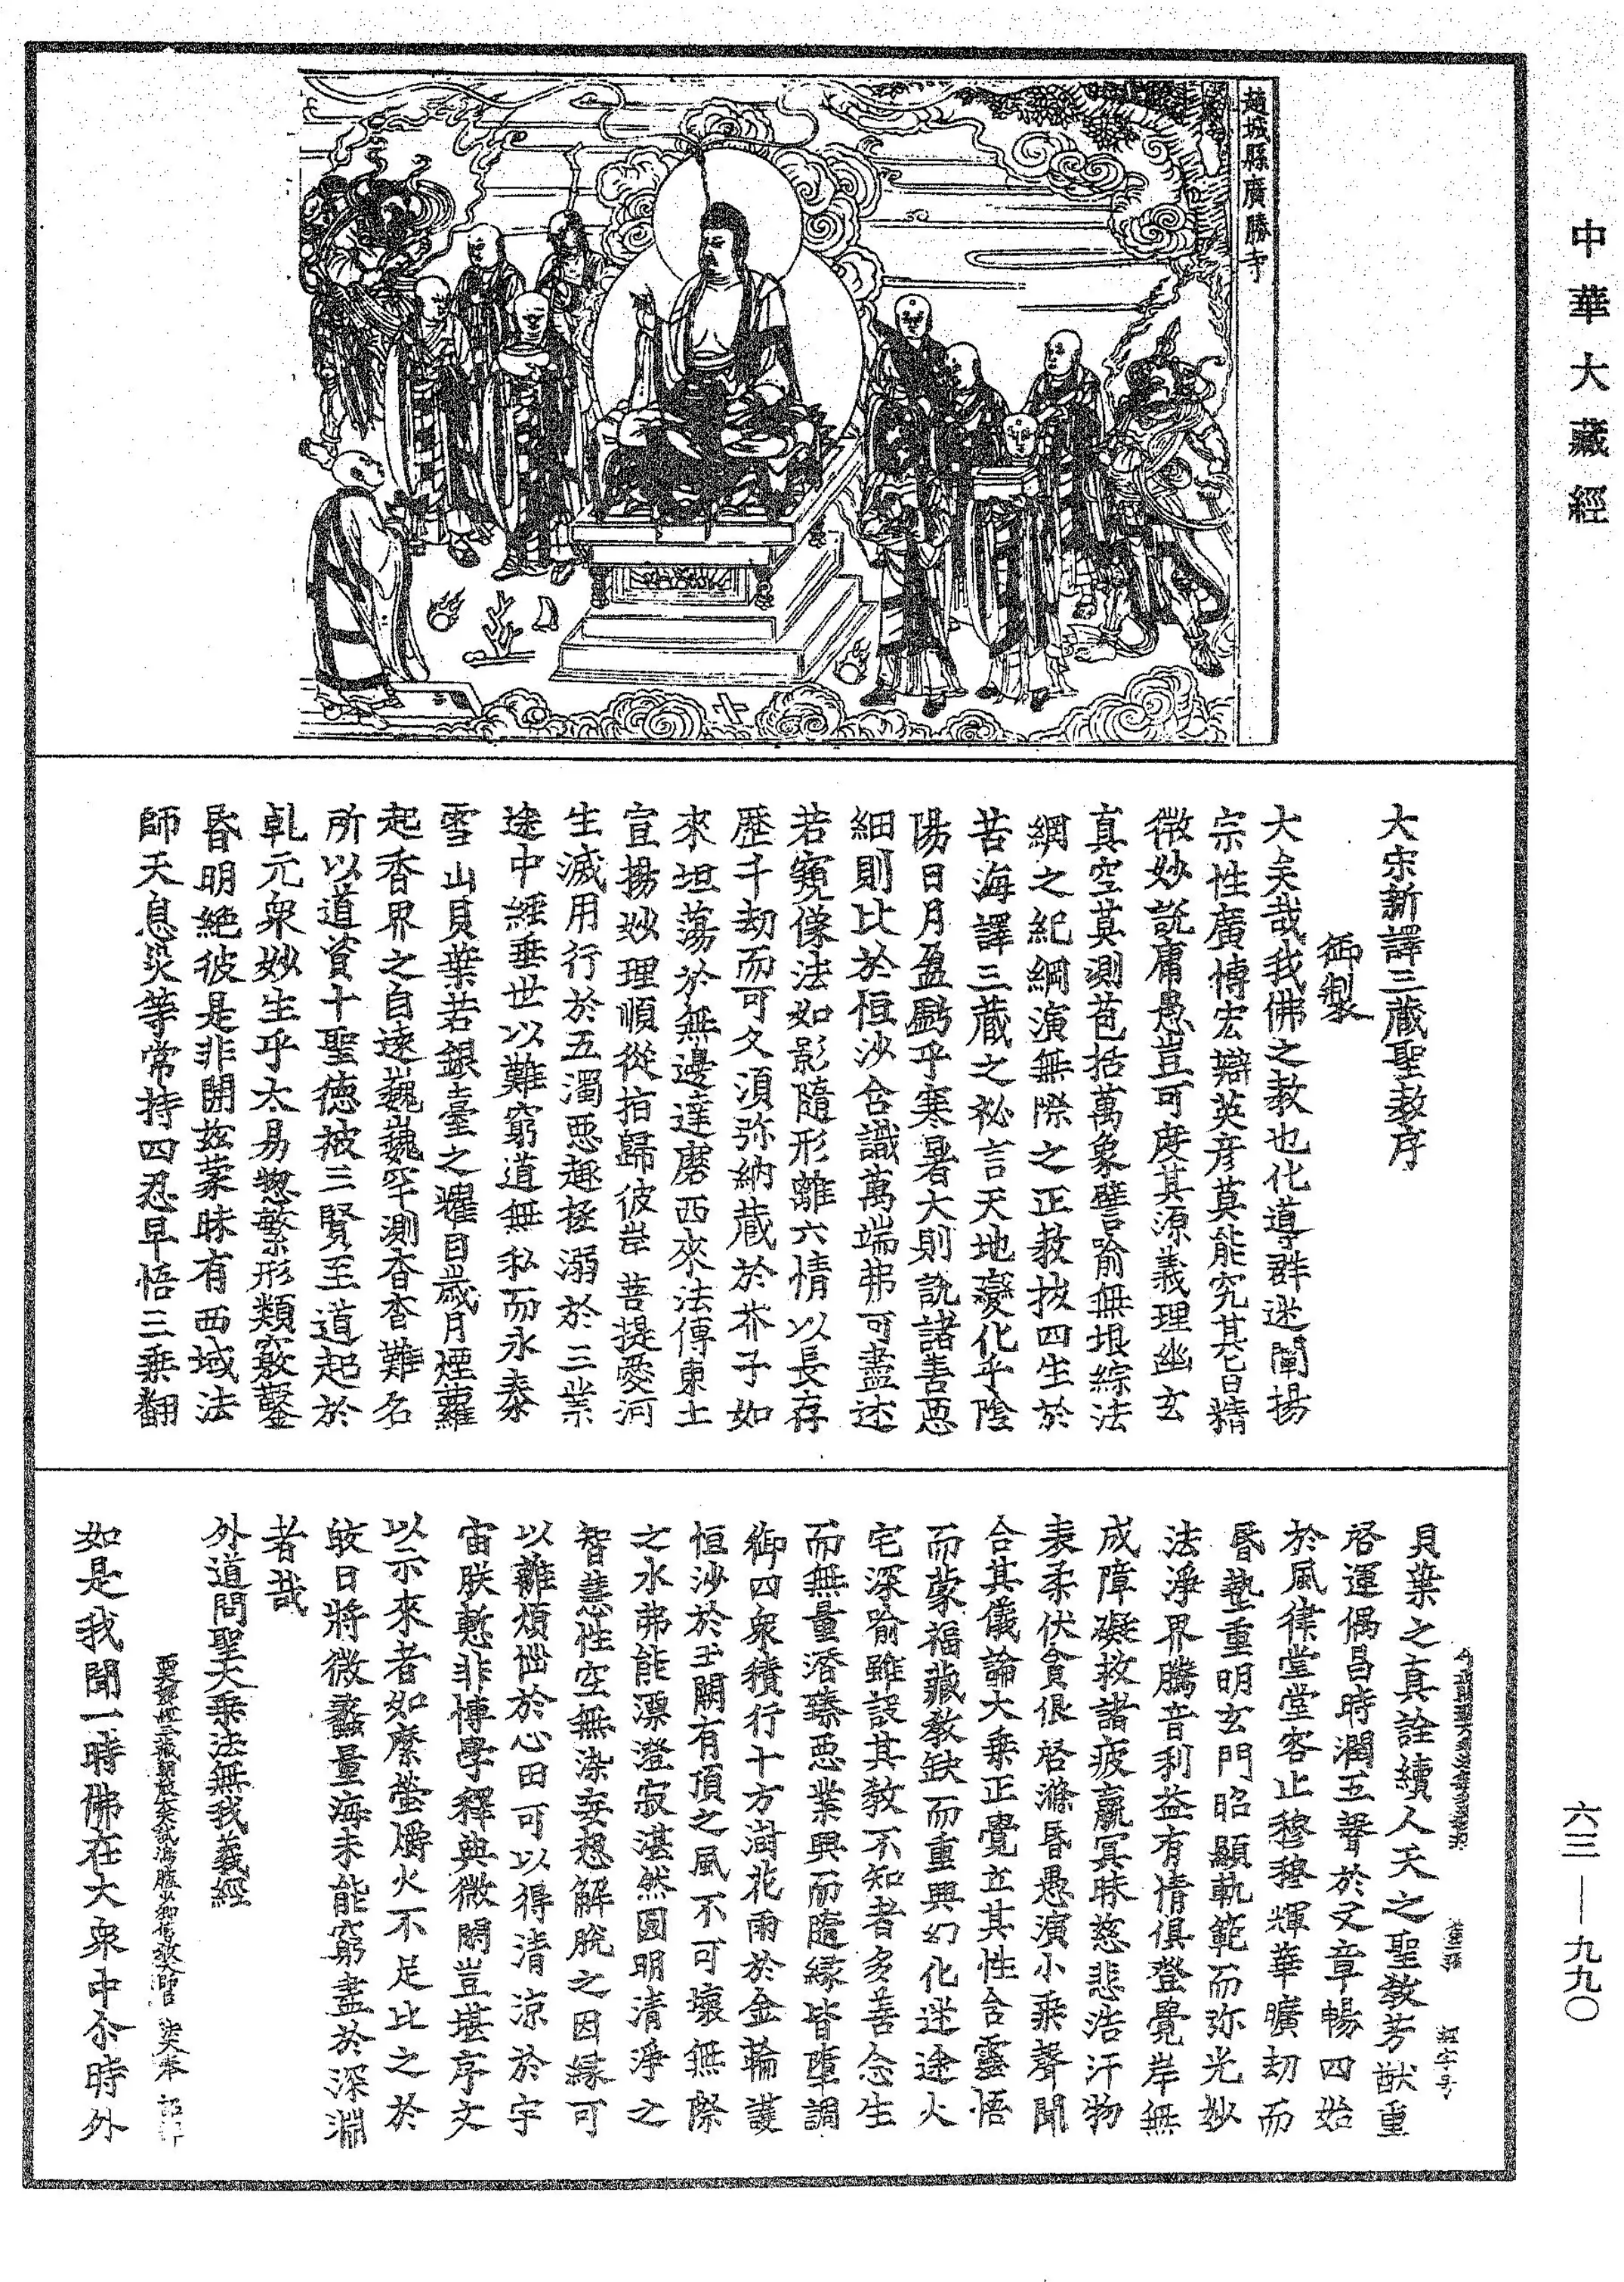 中華大藏經
趙城縣廣勝寺
大宋新譯三藏聖教序
御製
大矣哉我佛之教也化導群迷闡揚
宗性廣博宏辯英彦莫能究其旨精
微妙說庸愚豈可度其源義理幽玄
真空莫測苞括萬象譬喻無垠綜法
網之紀綱演無際之正教拔四生於
苦海譯三藏之祕言天地變化乎陰
陽日月盈虧乎寒暑大則說諸善惡
細則比於恒沙含識萬端弗可盡述
若窺像法如影隨形離六情以長存
歷千劫而可久須弥納藏於芥子如
來坦蕩於無邊達磨西來法傳東土
宣揚妙理順從指歸彼岸菩提愛河
生滅用行於五濁惡趣拯溺於三業
途中經垂世以難窮道無私而永泰
雪山貝葉若銀臺之耀目歲月煙蘿
起香界之自遠巍巍罕測杳杳難名
所以道資十聖德被三賢至道起於
乹元衆妙生乎太易惣繁形類竅鑿
昬明絶彼是非開兹蒙昧有西域法
師天息災等常持四忍早悟三乗翻
貝葉之真詮續人天之聖教芳猷重
啓運偶昌時潤五聲於文章暢四始
於風律堂堂容止穆穆輝華曠劫而
昬墊重明玄門昭顯軌範而弥光妙
法淨界騰音利益有情俱登覺岸無
成障礙救諸疲羸冥昧慈悲浩汗物
表柔伏貪佷啓滌昬愚演小乗聲聞
合其儀論大乗正覺立其性含靈悟
而蒙福藏教缺而重興幻化迷途火
宅深喻雖設其教不知者多善念生
而無量潛臻惡業興而隨緣皆墮調
御四衆積行十方澍花雨於金輪護
恒沙於玉闕有頂之風不可壞無際
之水弗能漂澄寂湛然圓明清淨之
智慧性空無染妄想解脫之因緣可
以離煩惱於心田可以得清凉於宇
宙朕慙非博學釋典微閑豈堪序文
以示來者如縻螢爝火不足比之於
皎日將微蠡量海未能窮盡於深淵
者哉
外道問聖大乗法無我義經
如是我聞一時佛在大衆中尒時外
六三—九九〇